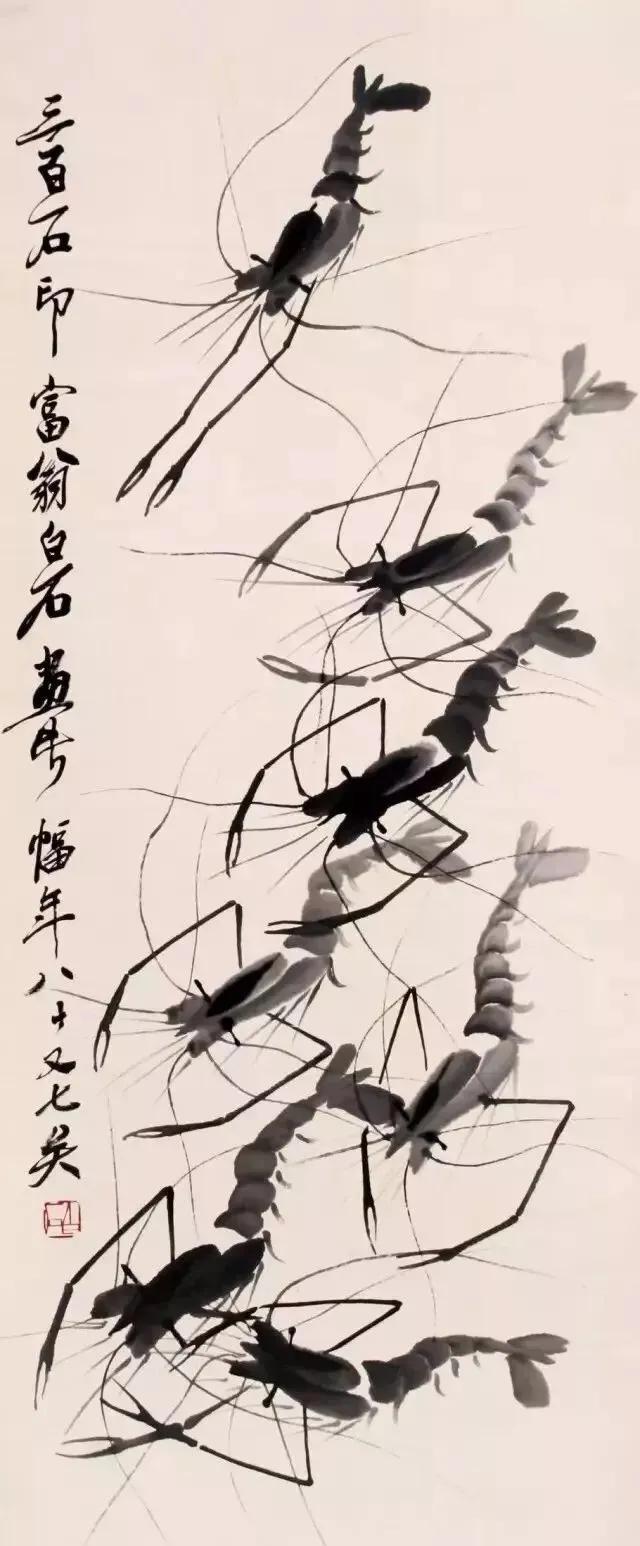 三百石印富翁白石畫此幅年八十又七矣
白石